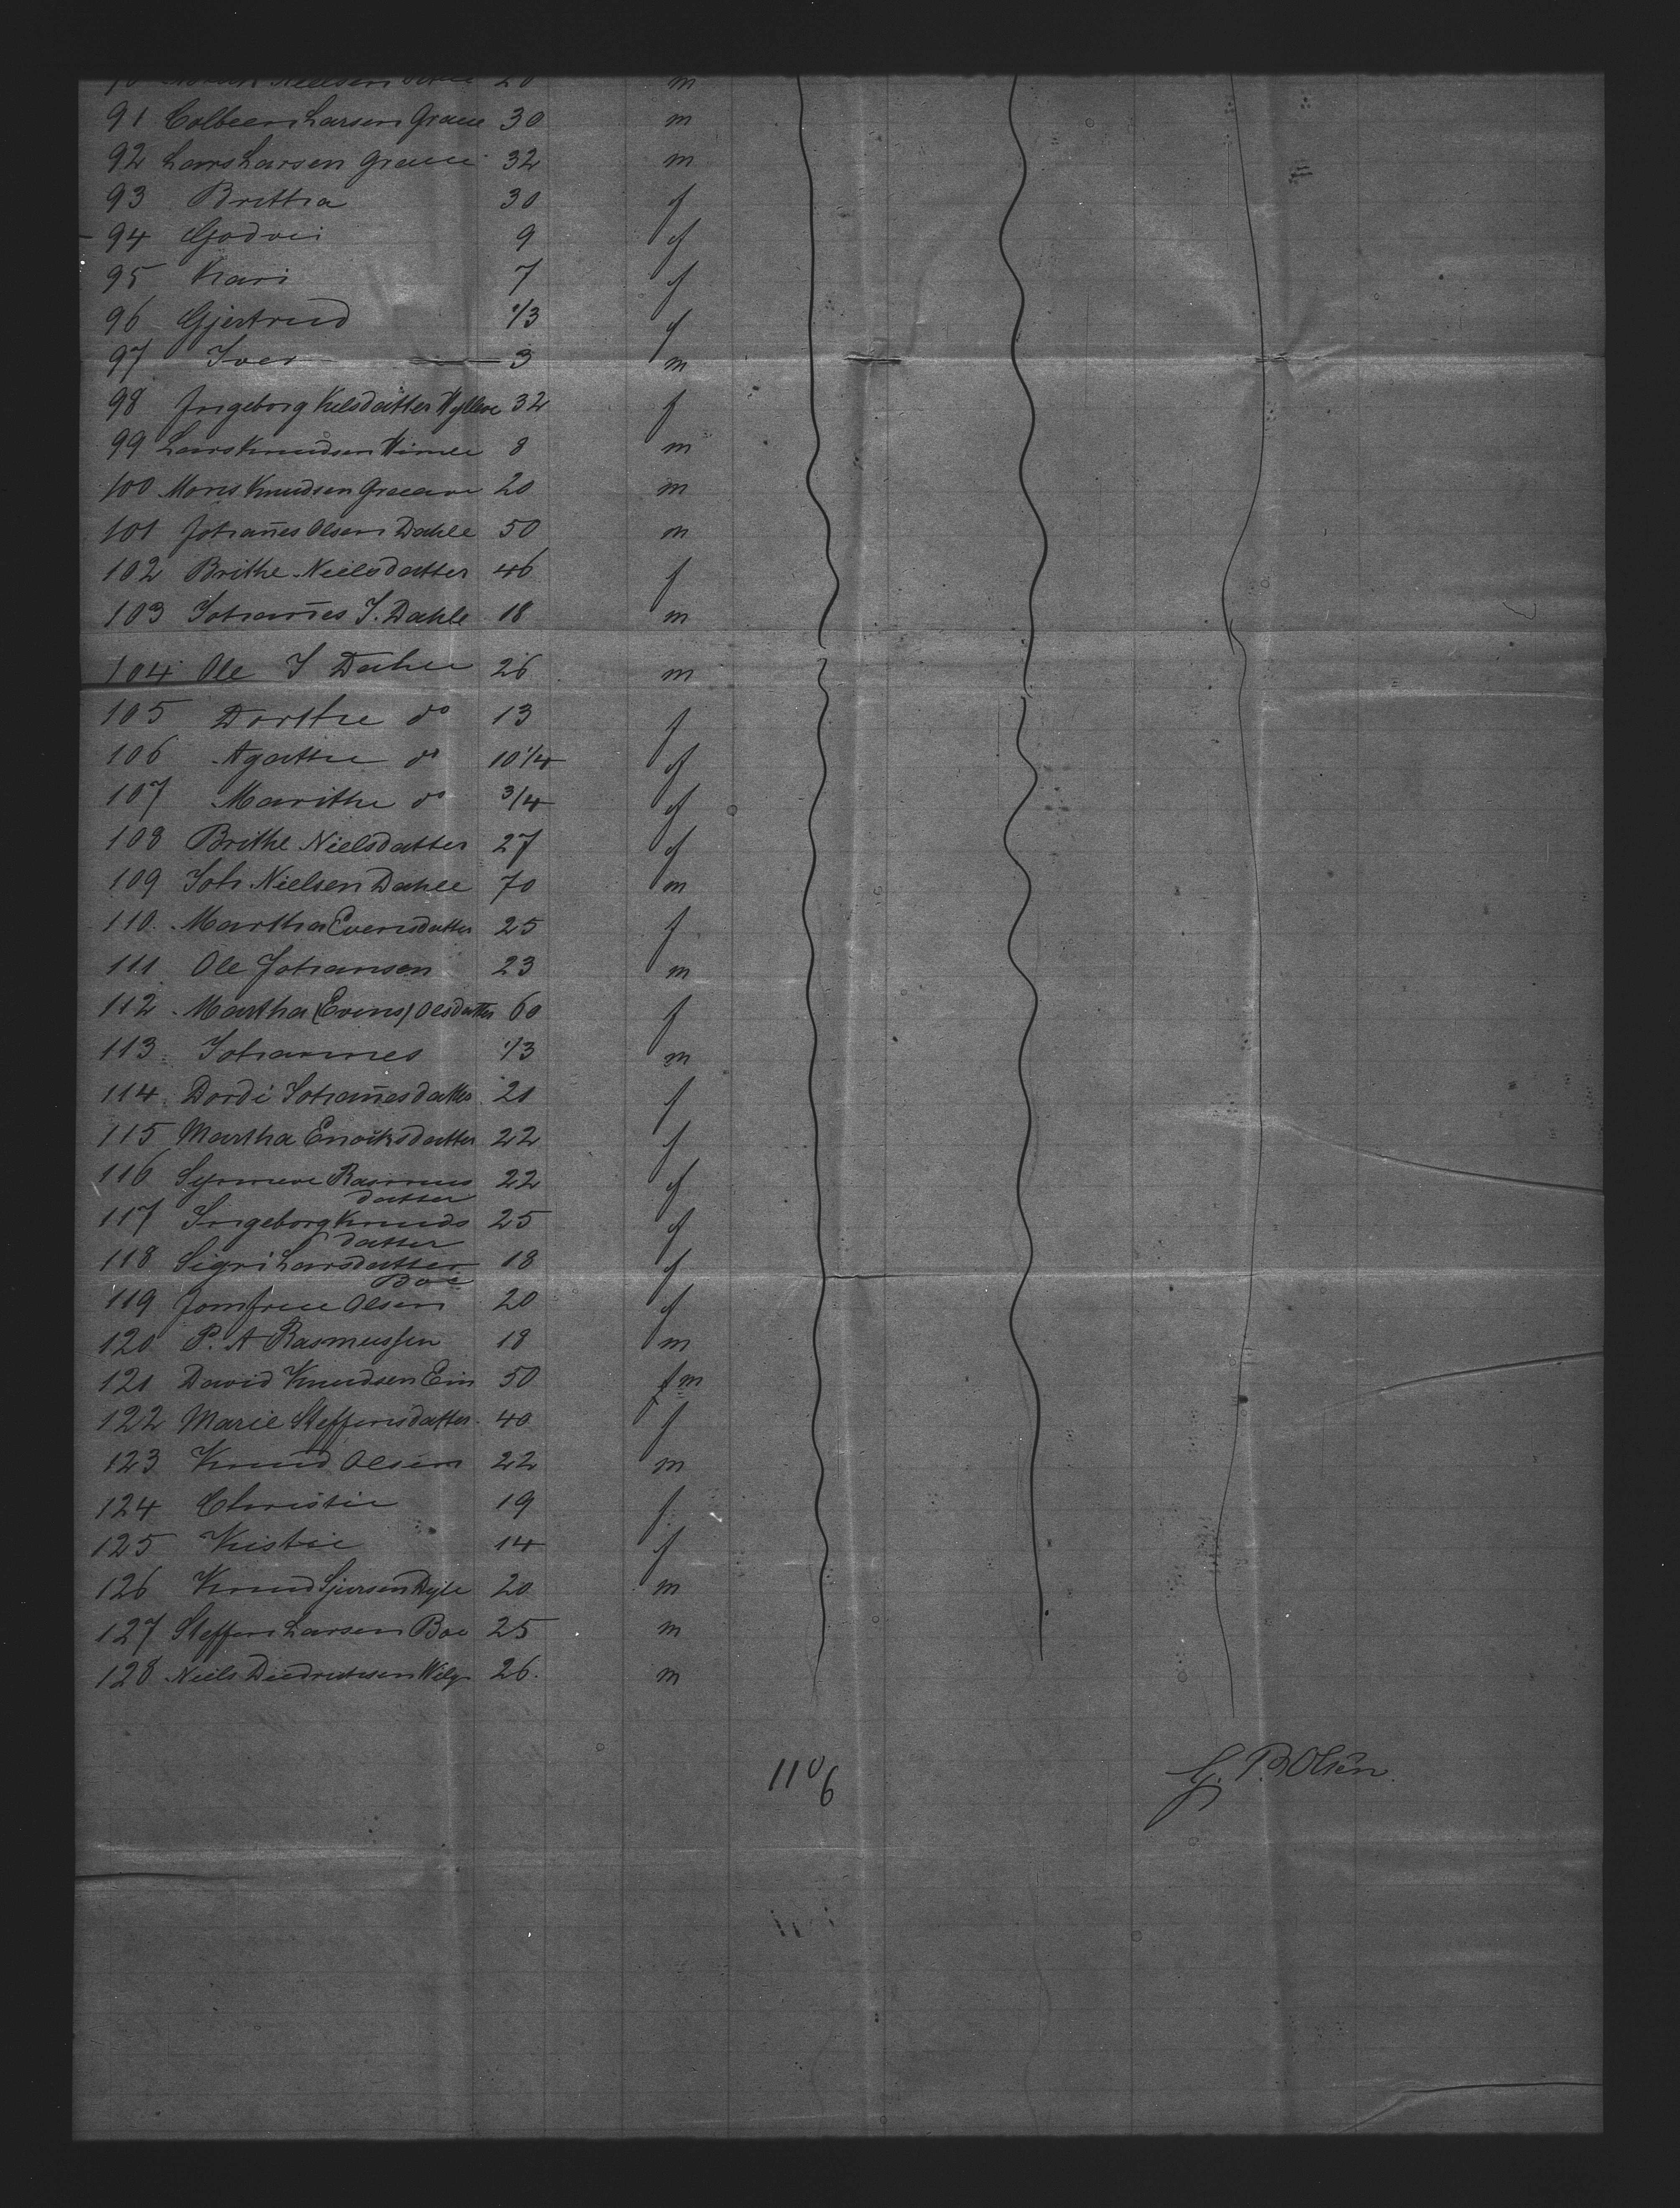 20 m
91 Colbeen Larsen Graue 30 m
92 Lars Larsen Graue 32 m
93 Brittha 30 f
94 Godvei 9 f
95 Kari 7 f
96 Gjertrud 1/3 f
97 Iver 3 m
98 Ingeborg Nelsdatter 32 f
99 Lars Knudsen 8 m
100 Mons Knudsen 20 m
101 Johañes Olsen Dahle 50 m
102 Brithe Nielsdatter 46 f
103 Johañes J. Dahle 18 m
104 Ole J Dahle 26 m
105 Dorthe do 13 f
106 Agathe do 10 1/4 f
107 Marithe do 3/4 f
108 Brithe Nielsdatter 27 f
109 Joh Nielsen Dahle 70 m
110 Martha Evensdatter 25 f
111 Ole Johansen 23 m
112 Martha (Evens) Olsdatter 60 f
113 Johannes 1/3 m
114 Dordi Johañesdatter 21 f
115 Martha Enoiksdatter 22 f
116 Synneve Rasmus 22 f
datter
117 Ingeborg Knuds 25 f
datter
118 Sigri Larsdatter 18 f
Boe
119 Jomfrue Olsen 20 f
120 P. A Rasmussen 18 m
121 David Knudsen Ein 50 fm
122 Marie Steffensdatter 40 f
123 Knud Olsen 22 m
124 Christie 19 f
125 Kistie 14 f
126 Knud Sjursen 20 m
127 Steffen Larsen Boe 25 m
128 Niels Diedrichsen 26 m
110 6
G. B Olsen.